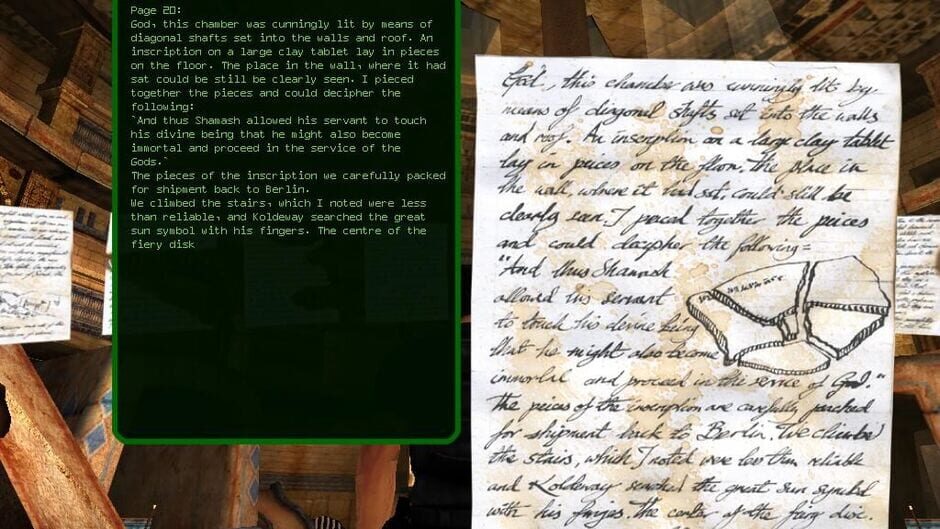 Page 20:
God, this chamber was cunningly lit by means of
diagonal shafts set into the walls and roof. An
inscription on a large clay tablet lay in pieces
on the floor. The place in the wall, where it had
sat could be still be clearly seen. I pieced
together the pieces and could decipher the
following:
`And thus Shamash allowed his servant to touch
his divine being that he might also become
immortal and proceed in the service of the
Gods.`
The pieces of the inscription we carefully packed
for shipment back to Berlin.
We climbed the stairs, which I noted were less
than reliable, and Koldeway searched the great
sun symbol with his fingers. The centre of the
fiery disk
God, this chamber was cunningly lit by
means of diagonal shafts set into the walls
and roof. An inscription on a large clay tablet
lay in pieces on the floor. The place in
the wall, where it had set, could still be
clearly seen. I pieced together the pieces
and could decipher the following:
"And thus Shamash
allowed his servant
to touch his devine being
that he might also become
immortal and proceed in the service of God."
The pieces of the inscription we carefully packed
for shipment back to Berlin. We climbed
the stairs, which I noted were less than reliable
and Koldeway searched the great sun symbol
with his finges. The center of the fiery disc.